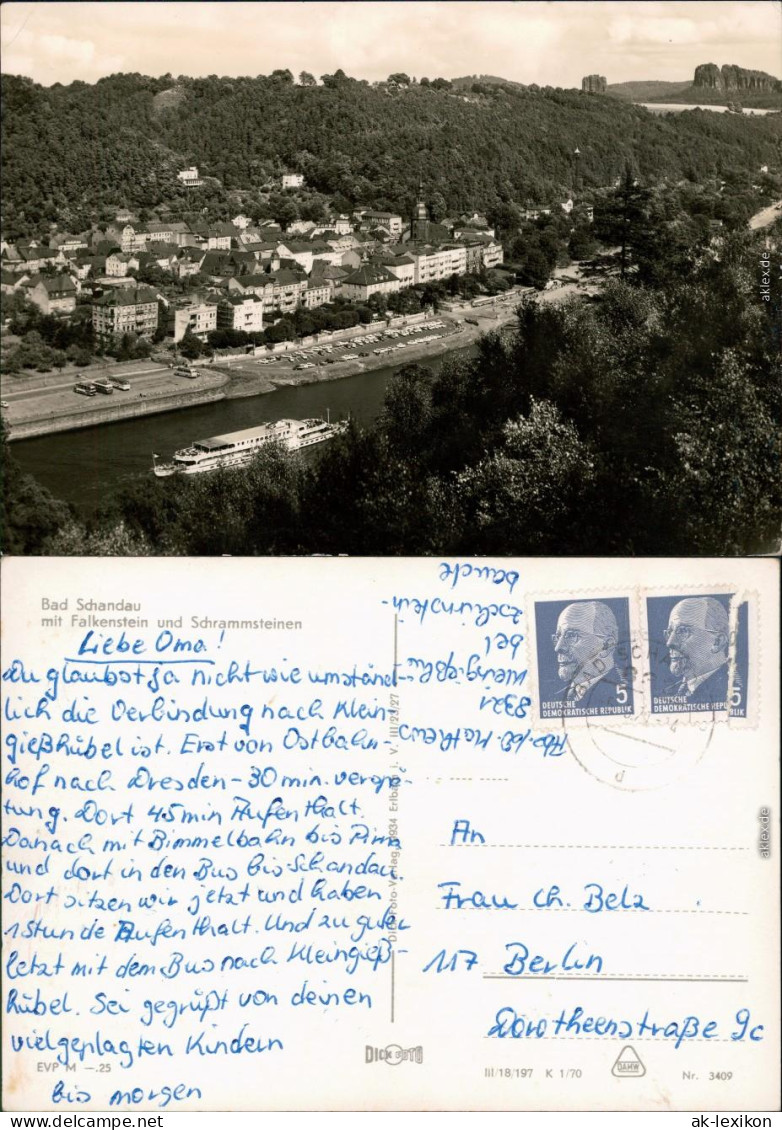 Bad Schandau
mit Falkenstein und Schrammsteinen
Liebe Oma!
Du glaubst ja nicht wie umständ-
lich die Verbindung nach Klein
gießhübel ist. Erst von Ostbahn-
hof nach Dresden - 30 min. verspä-
tung. Dort 45 min Aufenthalt.
Danach mit Bimmelbahn bis Pirna
und dort in den Bus bis Schandau.
Dort sitzen wir jetzt und haben
1 Stunde Aufenthalt. Und zu guter
letzt mit dem Bus nach Kleingieß-
hübel. Sei gegrüßt von deinen
vielgeplagten Kindern
bis morgen
EVP M -.25
DICK FOTO
Dick-Foto-Verlag, 9934 Erlbach i. V. III/23/27
Abs. Mathews
8321
Kleingießhü-
bel
Zschirnstein-
baude
DEUTSCHE
DEMOKRATISCHE REPUBLIK
5
DEUTSCHE
DEMOKRATISCHE REPUBLIK
5
BAD SCHANDAU
d
An
Frau Ch. Belz
117 Berlin
Dorotheenstraße 9c
III/18/197 K 1/70
DAMW
Nr. 3409
aklex.de
aklex.de
ak-lexikon